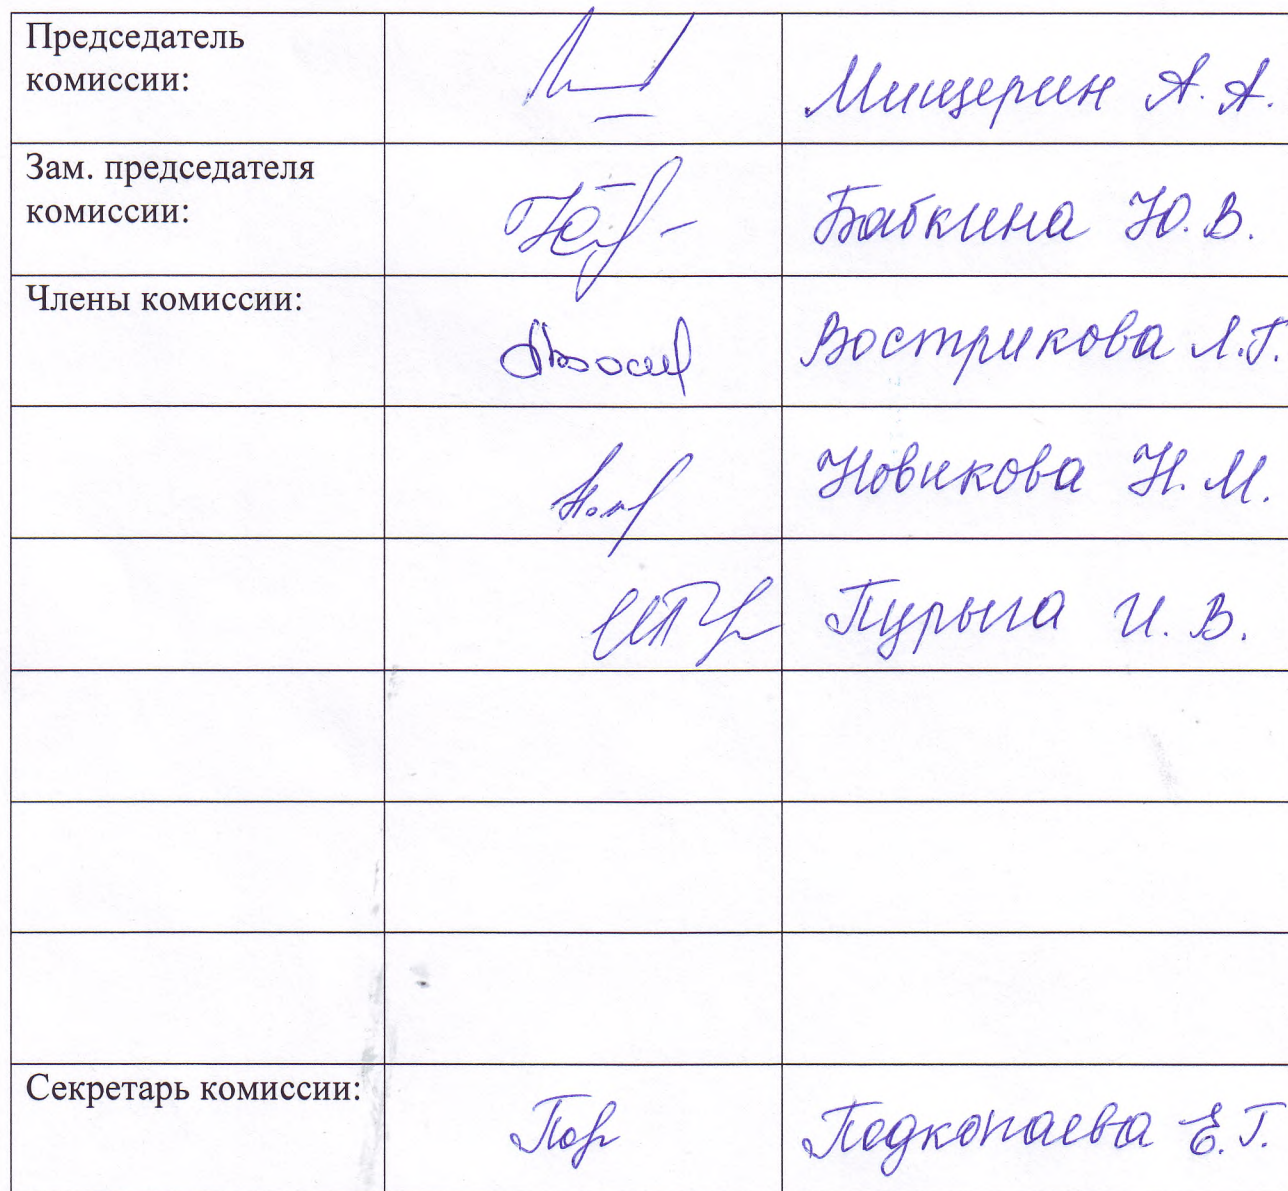 Председатель
комиссии:
Мищерин А. А.
Зам. председателя
комиссии:
Бабкина Ю. В.
Члены комиссии:
Вострикова Л. Г.
Новикова Н. М.
Пурыга И. В.
Секретарь комиссии:
Подкопаева Е. Г.